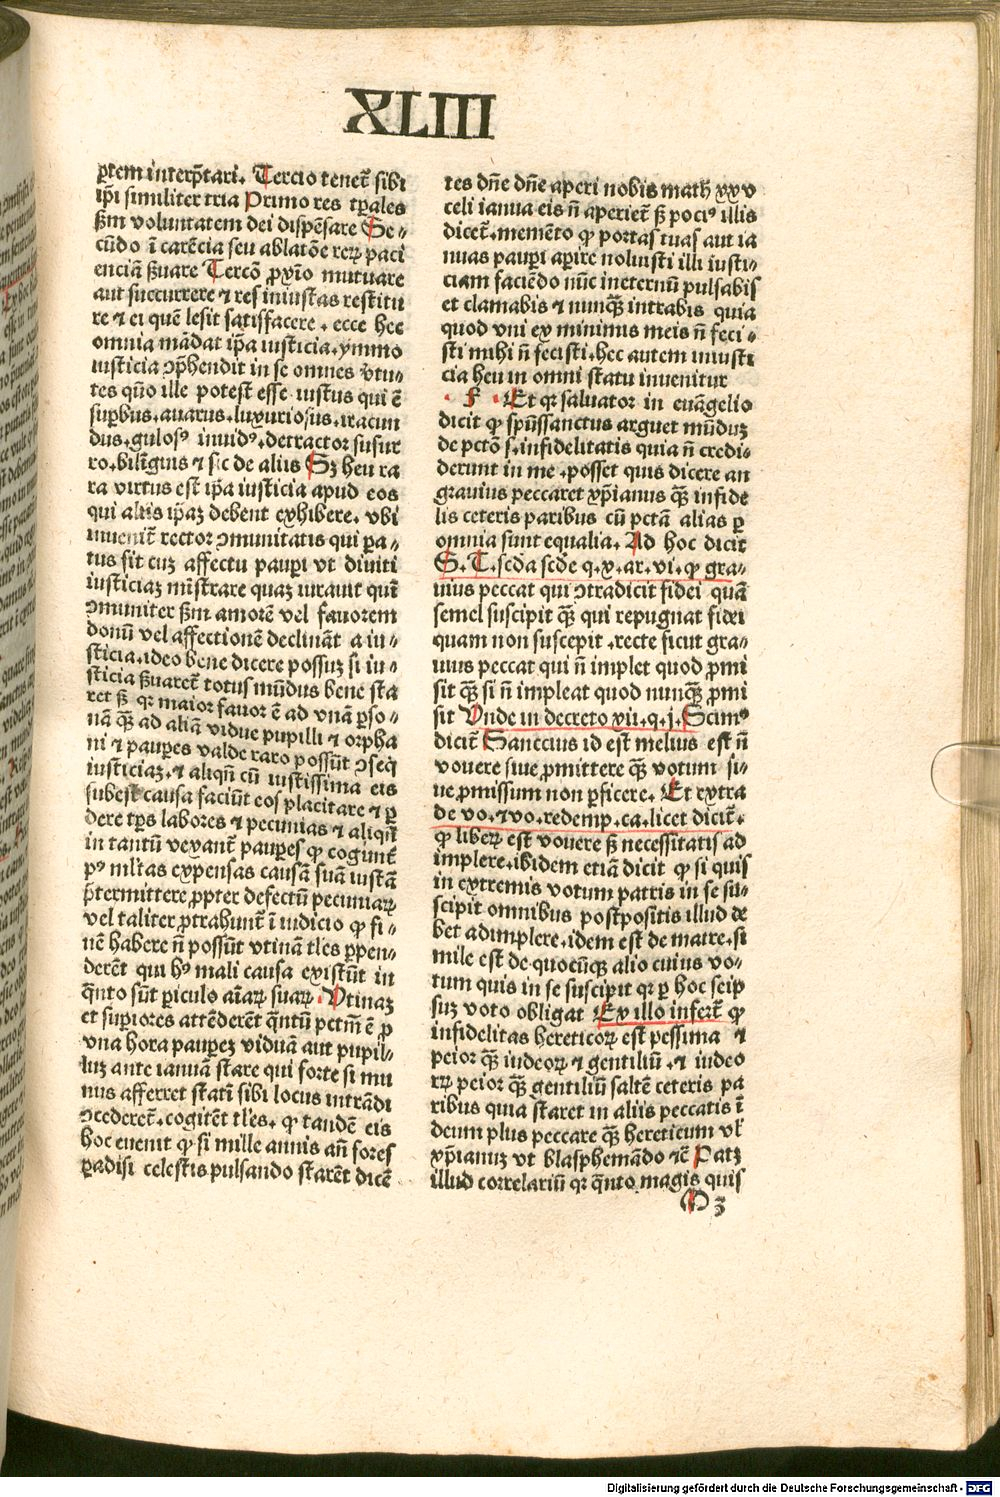 XLIII
ꝑtem interp̃tari. Tercio tenet̃ sibi
ip̃i similiter tria Primo res tp̃ales
ẜm voluntatem dei dispẽsare Se-
cũdo ĩ carẽcia seu ablatõe reꝝ paci
enciã ẜuare Tercõ ꝓxĩo mutuare
aut succurrere ⁊ res iniustas restitu
re ⁊ ei quẽ lesit satisfacere. ecce hec
omnia mãdat ip̃a iusticia. ymmo
iusticia ↄp̃hendit in se omnes v̾tu-
tes quõ ille potest esse iustus qui ẽ
suꝑbus. auarus. luxuriosus. iracun
dus. gulosꝰ inuidꝰ. detractor susur
ro. bilĩguis ⁊ sic de aliis Sꝫ heu ra
ra virtus est ip̃a iusticia apud eos
qui aliis ip̃aꝫ debent exhibere. vbi
inuenit̃ rector ↄmunitatis qui pa-
tus sit cuꝫ affectu pauꝑi vt diuiti
iusticiaꝫ mĩstrare quaꝫ iurauit qui
ↄmuniter ẜm amorẽ vel fauorem
donũ vel affectionẽ declinãt a iu-
sticia. ideo bene dicere possuꝫ si iu-
sticia ẜuaret̃ totus mũdus bene sta
ret ẜꝫ qꝛ maior fauor ẽ ad vnã ꝑso-
nã q̃ꝫ ad aliã vidue pupilli ⁊ orpha
ni ⁊ pauꝑes valde raro possũt ↄseq̃
iusticiaꝫ. ⁊ aliqñ cũ iustissima eis
subest causa faciũt eos placitare ⁊ ꝑ
dere tp̃s labores ⁊ pecunias ⁊ aliqñ
in tantũ vexant̃ pauꝑes ꝙ cogunt̃
pꝰ ml̃tas expensas causã suã iustã
p̃termittere ꝓpter defectũ pecuniaꝝ
vel taliter ꝓtrahunt̃ ĩ iudicio ꝙ fi-
nẽ habere ñ possũt vtinã tl̃es ꝑpen-
derẽt qui hꝰ mali causa existũt in
q̃nto sũt ꝑiculo aĩaꝝ suaꝝ. Vtinaꝫ
et suꝑiores attẽderẽt q̃ntũ pctm̃ ẽ ꝓ
vna hora pauꝑeꝫ viduã aut pupil-
luꝫ ante ianuã stare qui forte si mu
nus afferret statĩ sibi locus intrãdi
ↄcederet̃. cogitẽt tl̃es. ꝙ tandẽ eis
hoc euenit ꝙ si mille annis añ fores
ꝑadisi celestis pulsando starẽt dicẽ
tes dñe dñe aperi nobis math xxv
celi ianua eis ñ aperiet̃ ẜꝫ pociꝰ illis
dicet̃. memẽto ꝙ portas tuas aut ia
nuas pauꝑi aꝑire noluisti illi iusti-
ciam faciẽdo nũc ineternũ pulsabis
et clamabis ⁊ nunq̃ꝫ intrabis quia
quod vni ex minimis meis ñ feci-
sti mihi ñ fecisti. hec autem iniusti
cia heu in omni statu inuenitur
. F . Et qꝛ saluator in euãgelio
dicit ꝙ spũssanctus arguet mũduꝫ
de pctõ ſ. infidelitatis quia ñ credi-
derunt in me. posset quis dicere an
grauius peccaret xp̃ianus q̃ꝫ infide
lis ceteris paribus cũ pctã alias ꝑ
omnia sunt equalia. Ad hoc dicit
S. T. scd̃a scd̃e q. x. ar. vi. ꝙ gra-
uius peccat qui ↄtradicit fidei quã
semel suscipit q̃ꝫ qui repugnat fidei
quam non suscepit. recte sicut gra-
uius peccat qui ñ implet quod ꝓmi
sit q̃ꝫ si ñ impleat quod nunq̃ꝫ ꝓmi
sit Vnde in decreto xvii. q. j. Scimꝰ
dicit̃ Sanccius id est melius est ñ
vouere siue ꝓmittere q̃ꝫ votum si-
ue ꝓmissum non ꝑficere. Et extra
de vo. ⁊ vo. redemp. ca. licet dicit̃.
ꝙ libeꝝ est vouere ẜꝫ necessitatis ad
implere. ibidem etiã dicit ꝙ si quis
in extremis votum patris in se su-
scipit omnibus postpositis illud de
bet adimplere. idem est de matre. si
mile est de quocũqꝫ alio cuius vo-
tum quis in se suscipit qꝛ ꝑ hoc seip
suꝫ voto obligat Ex illo infert̃ ꝙ
infidelitas hereticoꝝ est pessima ⁊
peior q̃ꝫ iudeoꝝ ⁊ gentiliũ. ⁊ iudeo
rꝝ peior q̃ꝫ gentiliũ saltẽ ceteris pa
ribus quia staret in aliis peccatis ĩ
deum plus peccare q̃ꝫ hereticum vl̾
xp̃ianuꝫ vt blasphemãdo ⁊c̃ Patꝫ
illud correlariũ qꝛ q̃nto magis quis
Digitalisierung gefördert durch die Deutsche Forschungsgemeinschaft - DFG